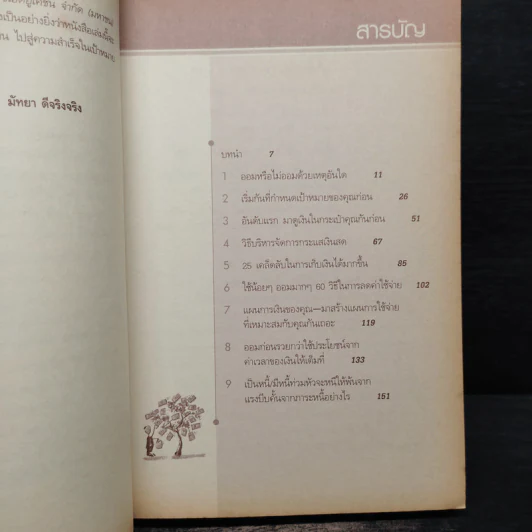 จำกัด (มหาชน)
เป็นอย่างยิ่งว่าหนังสือเล่มนี้จะ
ไปสู่ความสำเร็จในเป้าหมาย
มัทยา ดีจริงจริง
สารบัญ
บทนำ 7
1 ออมหรือไม่ออมด้วยเหตุอันใด 11
2 เริ่มกันที่กำหนดเป้าหมายของคุณก่อน 26
3 อันดับแรก มาดูเงินในกระเป๋าคุณกันก่อน 51
4 วิธีบริหารจัดการกระแสเงินสด 67
5 25 เคล็ดลับในการเก็บเงินได้มากขึ้น 85
6 ใช้น้อยๆ ออมมากๆ 60 วิธีในการลดค่าใช้จ่าย 102
7 แผนการเงินของคุณ—มาสร้างแผนการใช้จ่าย
ที่เหมาะสมกับคุณกันเถอะ 119
8 ออมก่อนรวยกว่าใช้ประโยชน์จาก
ค่าเวลาของเงินให้เต็มที่ 133
9 เป็นหนี้/มีหนี้ท่วมหัวจะหนีให้พ้นจาก
แรงบีบคั้นจากภาระหนี้อย่างไร 151